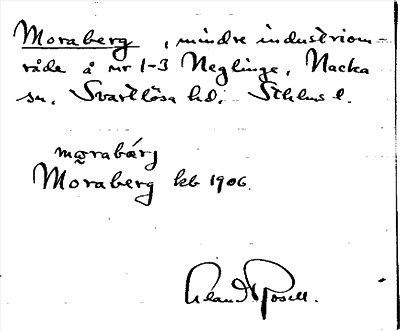 Moraberg, mindre industriom-
råde å nr 1-3 Neglinge, Nacka
sn. Svartlösa hd. Sthlms l.
mọrabærj
Moraberg kb 1906.
Rosell.